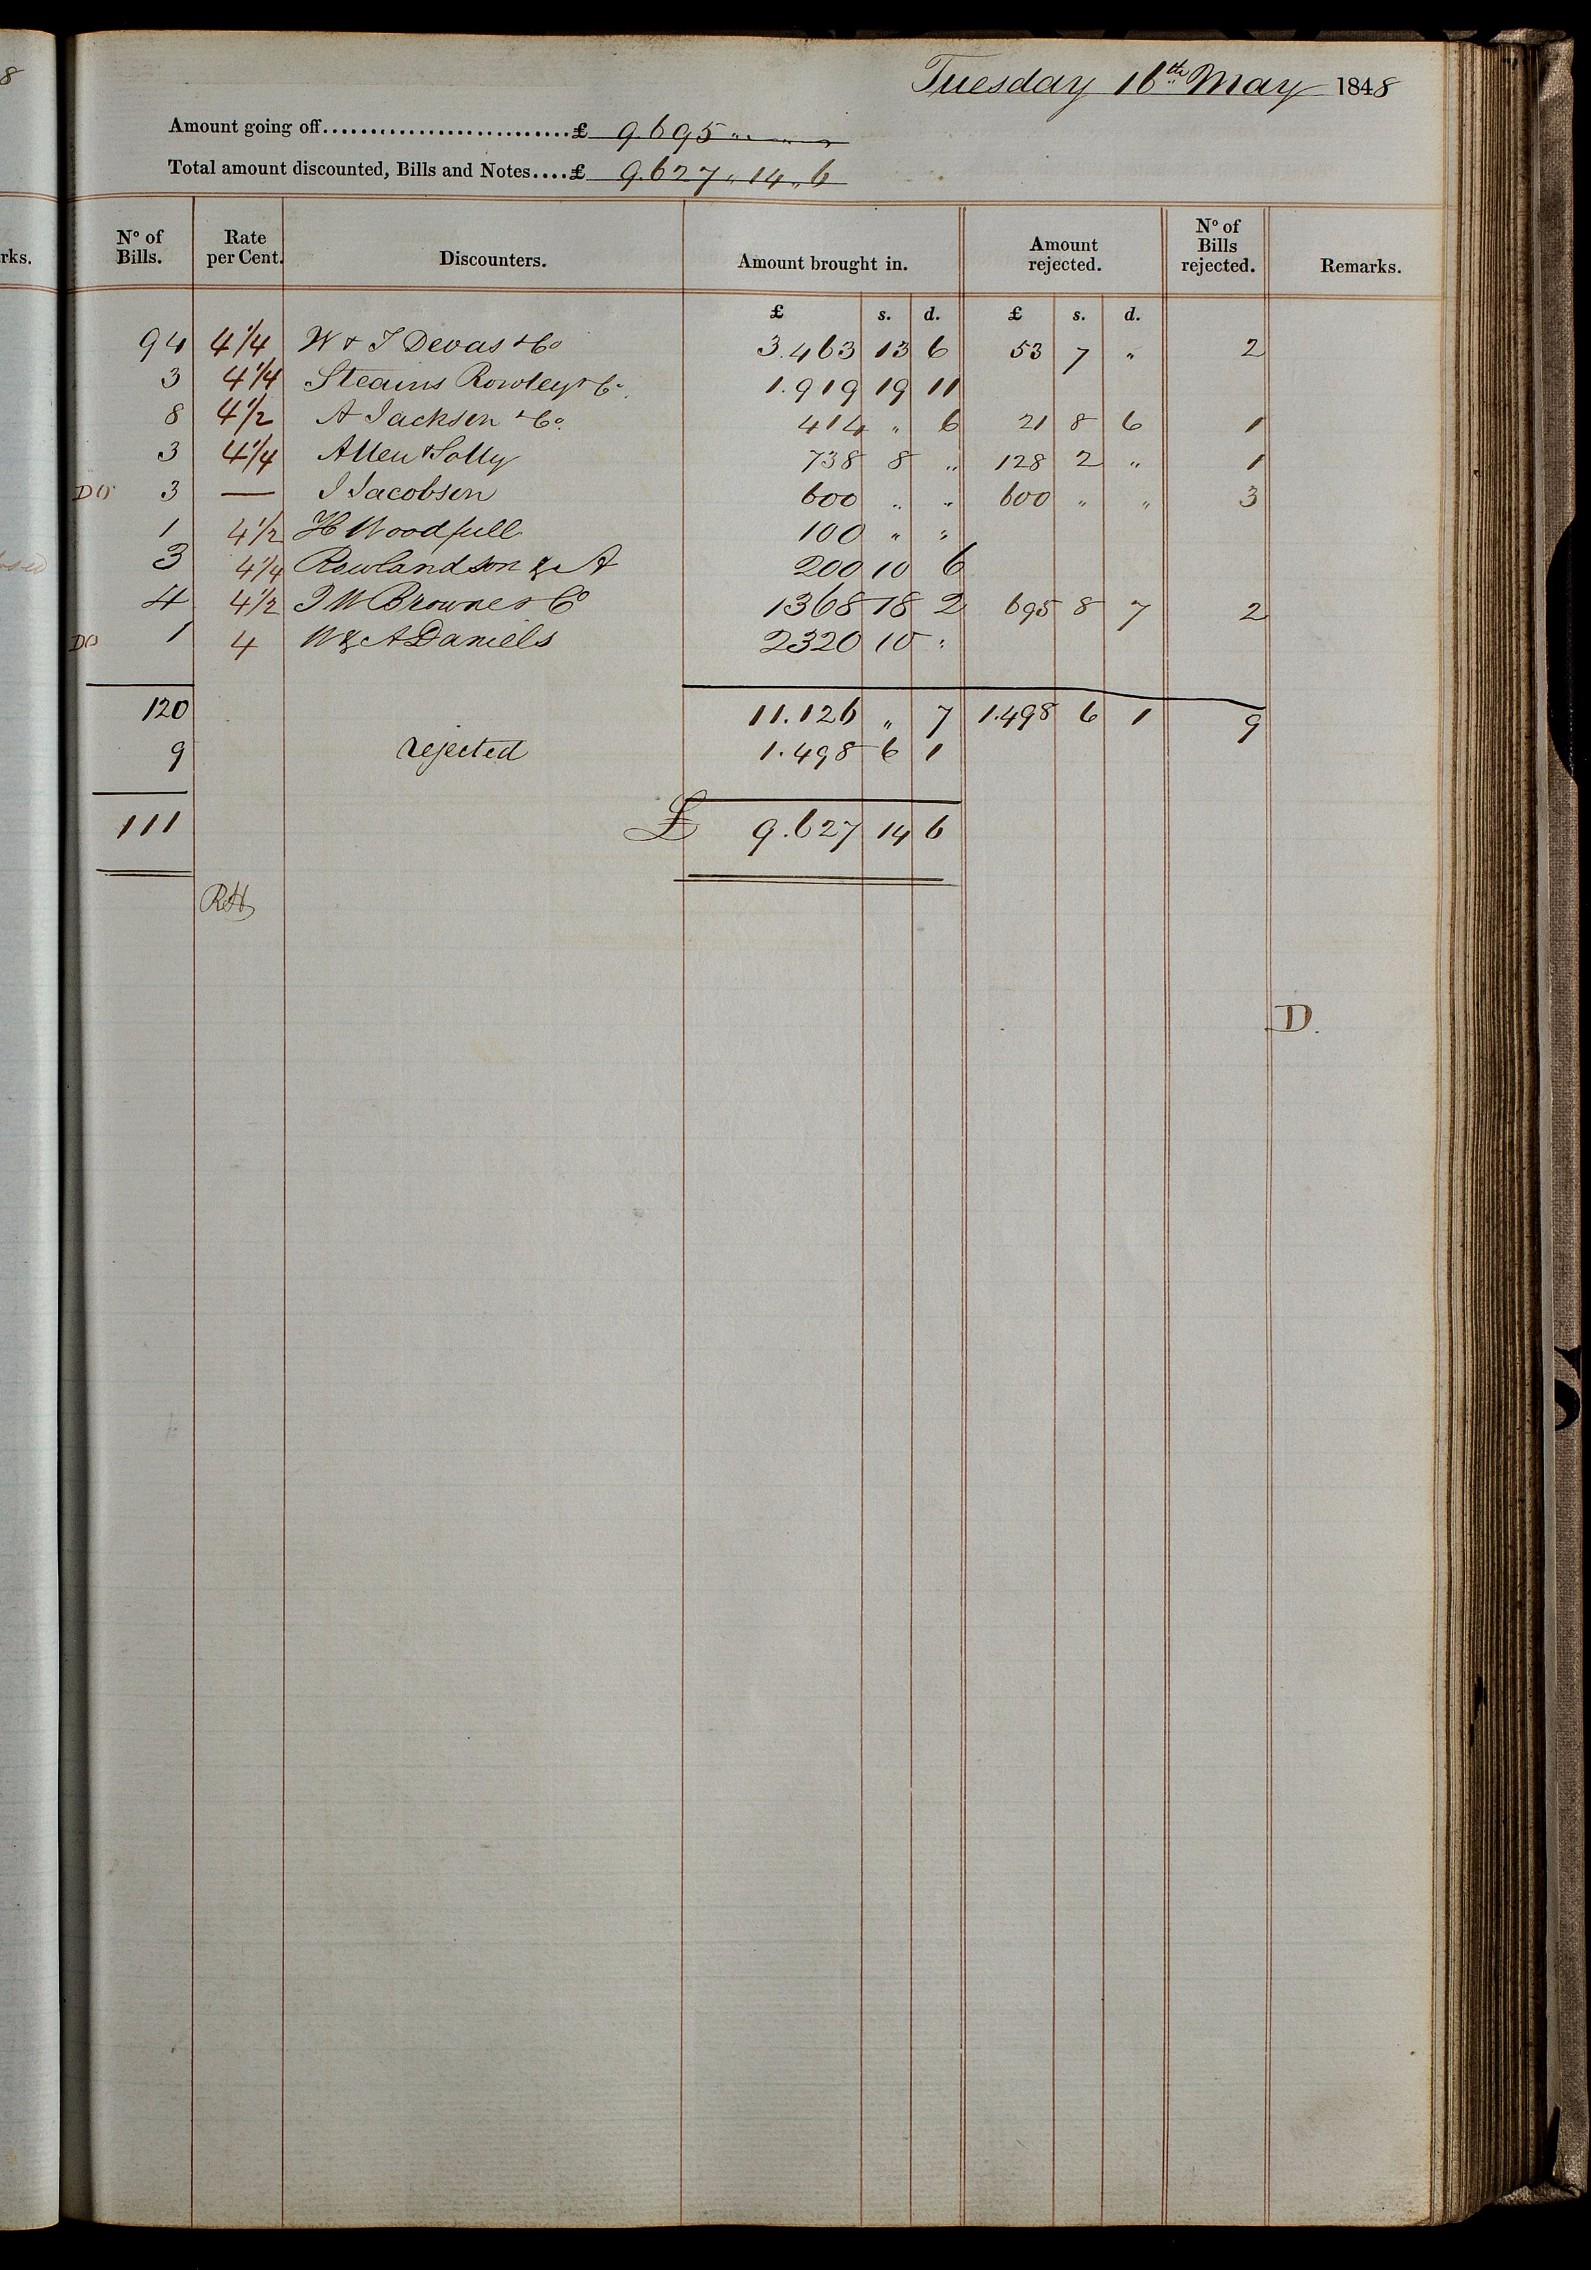 8
rks.
Tuesday 16th May 1848
Amount going off...........................£ 9.695 " " "
Total amount discounted, Bills and Notes....£ 9.627 " 14 " 6
No of Bills. Rate per Cent. Discounters. Amount brought in. Amount rejected. No of Bills rejected. Remarks.
£ s. d. £ s. d.
94 4 1/4 W & T Devas & Co 3.463 13 6 53 7 " 2
3 4 1/4 Steains Rowley & Co 1.919 19 11
8 4 1/2 A Jackson & Co. 414 " 6 21 8 6 1
3 4 1/4 Allen & Solly 738 8 " 128 2 " 1
DO 3 — J Jacobson 600 " " 600 " " 3
1 4 1/2 H Woodfull 100 " "
3 4 1/4 Rowlandson & A 200 10 6
4 4 1/2 J W Browne & Co 1368 18 2 695 8 7 2
DO 1 4 W & A Daniels 2320 10 "
120 11.126 " 7 1.498 6 1 9
9 rejected 1.498 6 1
111 £ 9.627 14 6
RH
D.